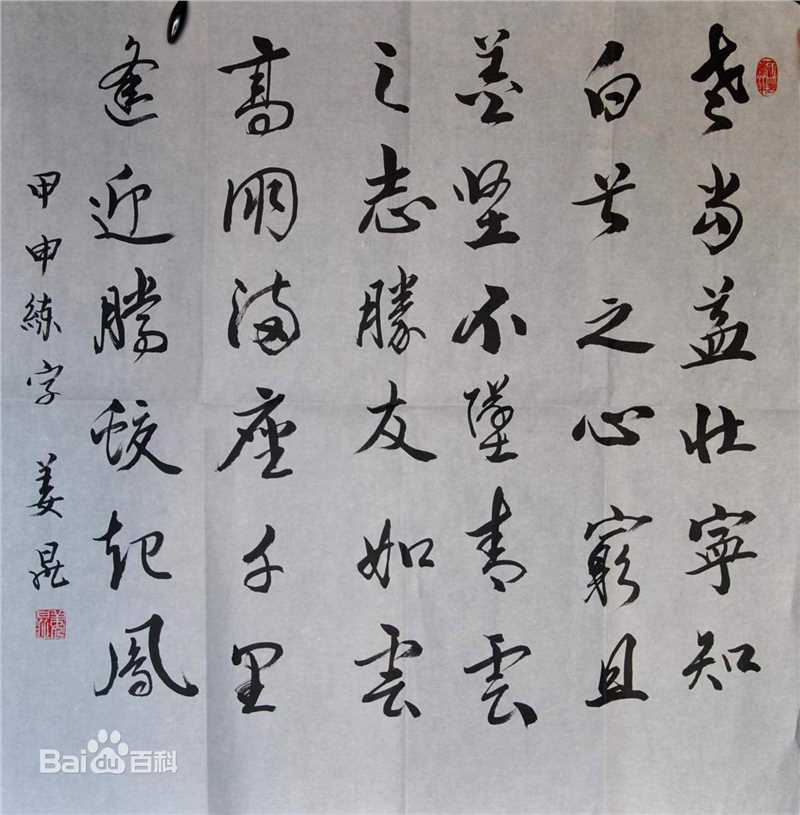 老当益壮寧知
白首之心窮且
益坚不墜青雲
之志勝友如雲
高朋满座千里
逢迎腾蛟起鳳
甲申練字 姜
Baidu百科